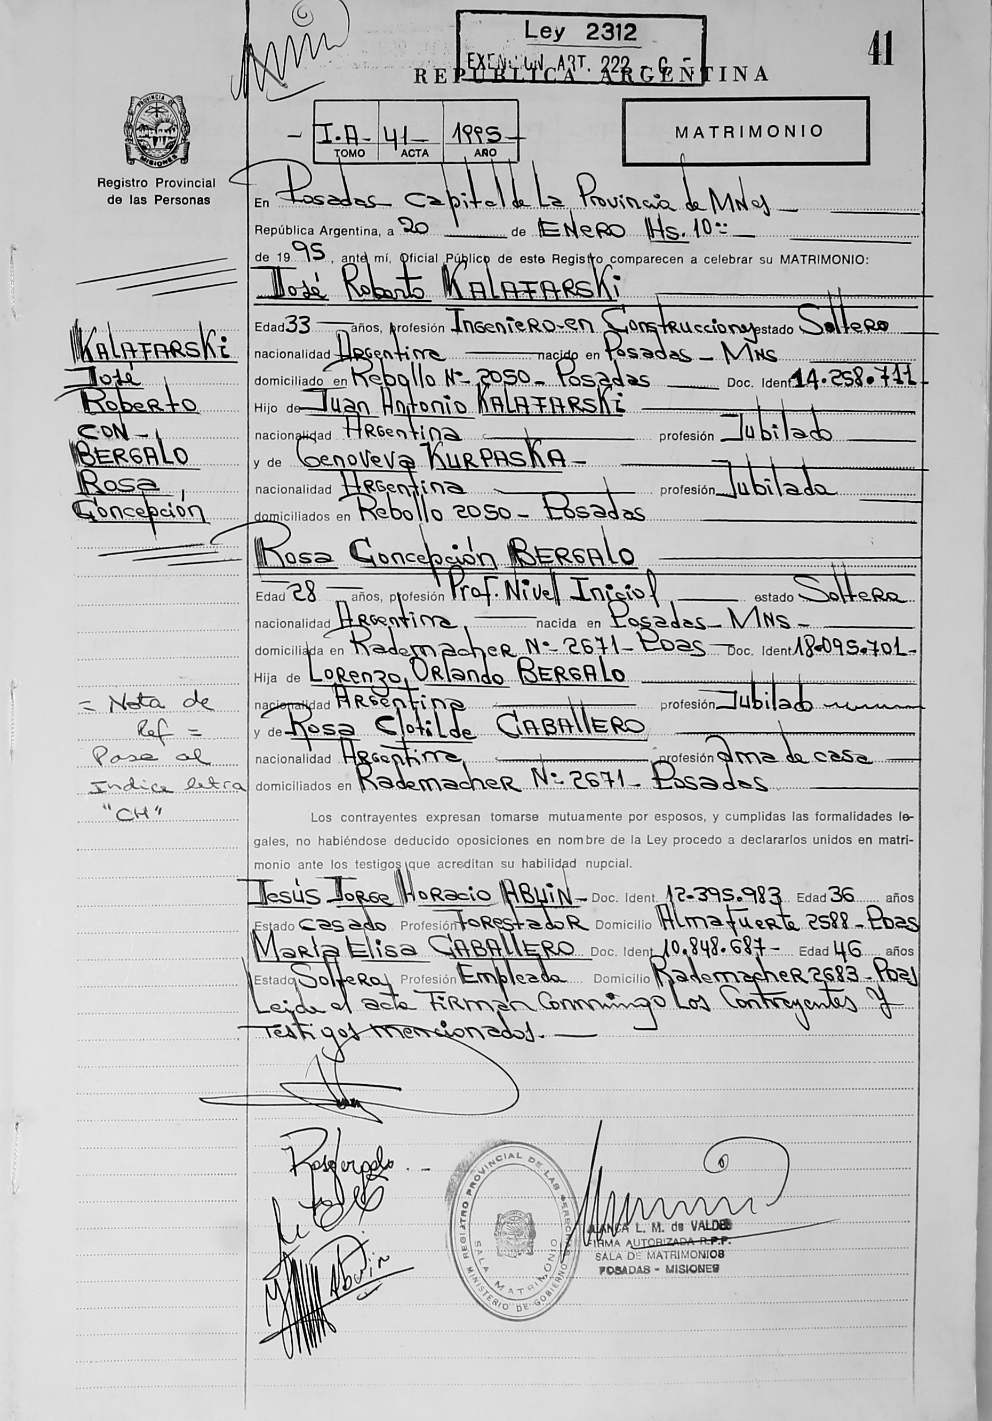 Ley 2312
EXENCION ART. 222 - G -
41
REPUBLICA ARGENTINA
- I.A- 41- 1995-
TOMO ACTA AÑO
MATRIMONIO
PROVINCIA DE MISIONES
Registro Provincial
de las Personas
En Posadas Capital de La Provincia de MNes
República Argentina, a 20 de ENERO Hs. 10:-
de 1995, ante mí, Oficial Público de este Registro comparecen a celebrar su MATRIMONIO:
José Roberto KALATARSKi
Edad 33 años, profesión Ingeniero en Construcciones estado Soltero
nacionalidad Argentina nacido en Posadas - MNS
domiciliado en Rebollo Nº 2050 - Posadas Doc. Ident. 14.258.711-
Hijo de Juan Antonio KALATARSKi
nacionalidad ARgentina profesión Jubilado
y de Genoveva KURPASKA -
nacionalidad ARgentina profesión Jubilada
domiciliados en Rebollo 2050 - Posadas
Rosa Concepción BERGALO
Edad 28 años, profesión Prof. Nivel Inicial estado Soltera
nacionalidad ARgentina nacida en Posadas - MNS -
domiciliada en Rademacher Nº 2671 - Pdas Doc. Ident. 18.095.701-
Hija de Lorenzo Orlando BERGALO
nacionalidad ARgentina profesión Jubilado
y de Rosa Clotilde CABALLERO
nacionalidad ARgentina profesión ama de casa
domiciliados en Rademacher Nº 2671 - Posadas
Los contrayentes expresan tomarse mutuamente por esposos, y cumplidas las formalidades le-
gales, no habiéndose deducido oposiciones en nombre de la Ley procedo a declararlos unidos en matri-
monio ante los testigos que acreditan su habilidad nupcial.
Jesús Jorge Horacio ABUIN - Doc. Ident. 12.395.983 Edad 36 años
Estado casado Profesión Forestador Domicilio Almafuerte 2588 - Pdas
María Elisa CABALLERO Doc. Ident. 10.848.687- Edad 46 años
Estado Soltera Profesión Empleada Domicilio Rademacher 2683 - Pdas
Leida el acta FiRman Conmingo Los Contrayentes Y
Testigos mencionados. -
KALATARSKi
José
Roberto
CON -
BERGALO
Rosa
Concepción
= Nota de
Ref =
Pase al
Indice letra
"CH"
Abuin
REGISTRO PROVINCIAL DE LAS PERSONAS
SALA MATRIMONIO
MINISTERIO DE GOBIERNO
BLANCA L. M. de VALDES
FIRMA AUTORIZADA R.P.P.
SALA DE MATRIMONIOS
POSADAS - MISIONES